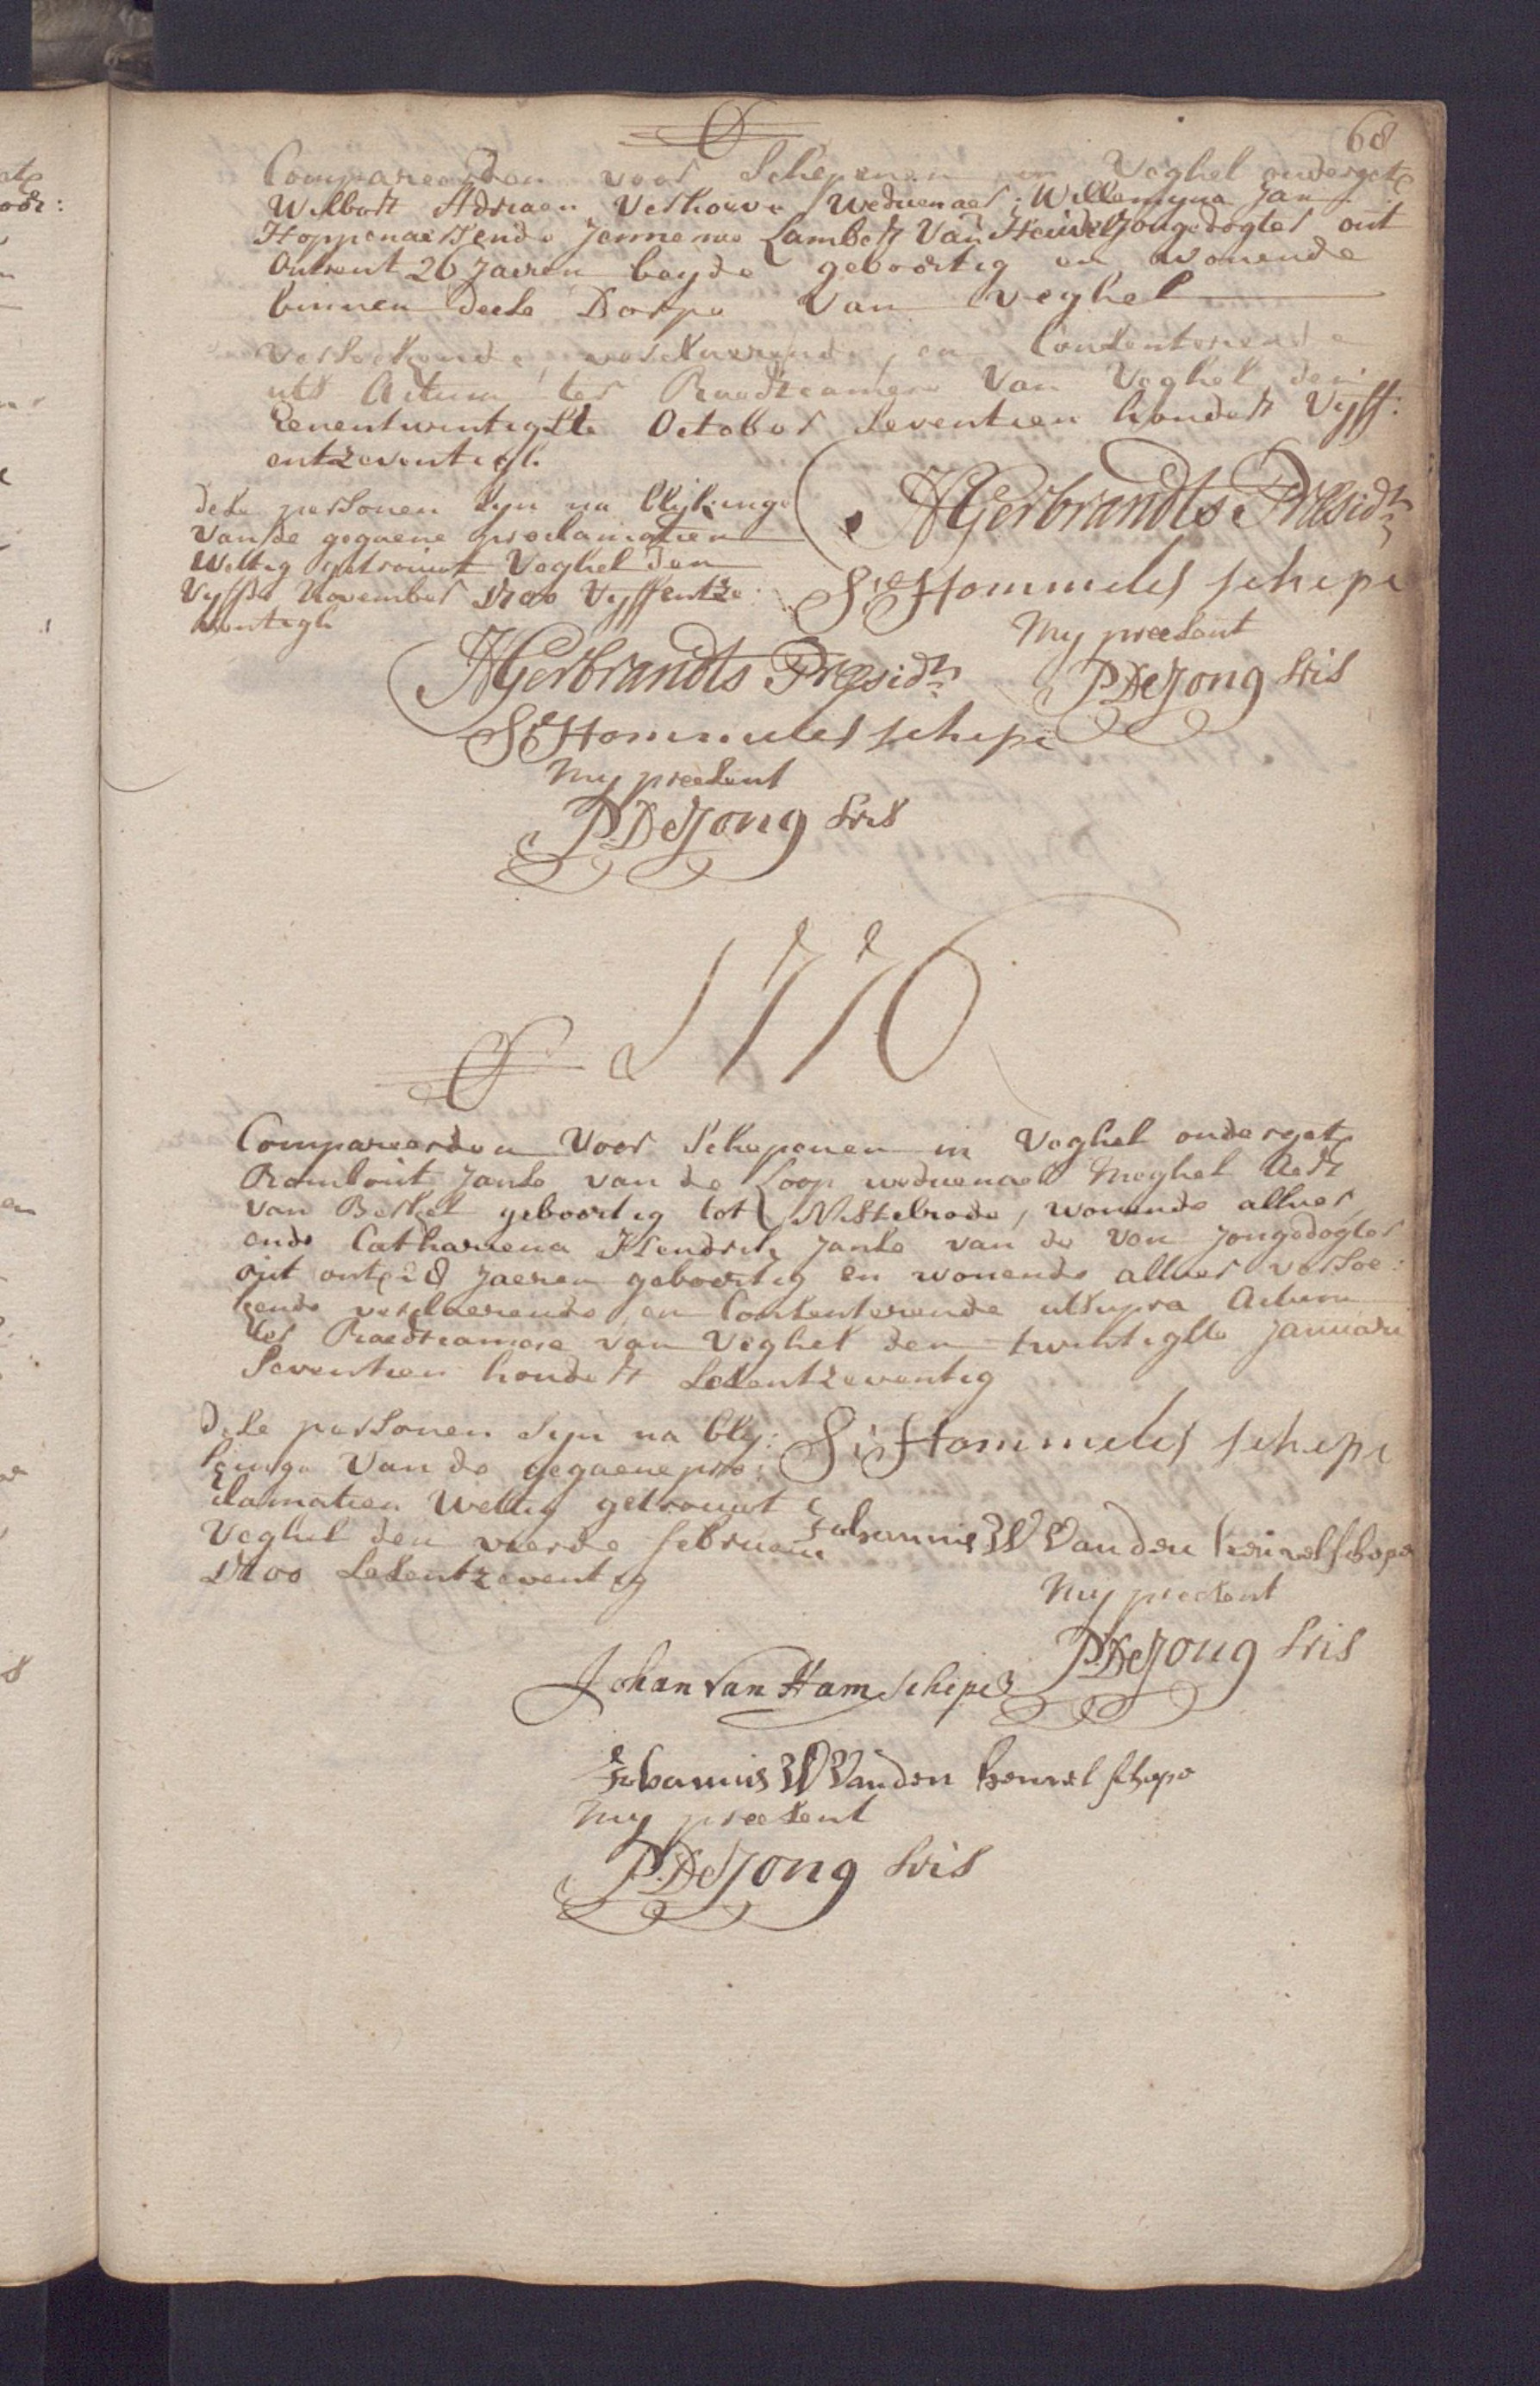 68
Compareerden voor Schepenen in Veghel onderget
Wilbort Adriaen Verhoeve Weduenaer Willemyna Jan
Hoppenaers ende Jennemie Lambert Van Heuvel Jongedogter out
ontrent 26 Jaeren beyde geboortig en wonende
binnen dese Dorpe Van Veghel
versoekende, verclaerende, en Consenterende
uts Actum ter Raedtcamere Van Veghel den
Eenentwintigste October Seventien hondert Vyff:
entzeventigh
dese persoonen syn na blykinge
Van de gegaene proclamatien
Wettig getrouwt Veghel den
Vyffde November 1700 Vyffentze:
ventigh
AGerbrandts Presidt
S: Hommeles schepe
My present
P: De Jong Sris
AGerbrandts Presidt
S: Hommeles schepe
My present
P: De Jong Sris
1776
Compareerden Voor Schepenen in Veghel onderget
Rombout Janse van de Loop weduenaer Meghel Aert
van Berkel geboortig tot Nistelrode, wonende alhier
ende Cathariena Hendrik Janse van de Ven Jongedogter
out ont: 28 Jaeren geboortig en wonende alhier versoe:
kende verclaerende en Consenterende utsupra Actum
ter Raedtcamere van Veghel den twintigste January
Seventien hondert Sesentzeventig
dese persoonen syn na bly:
kinge Van de gegaene pro:
clamatien Wettig getrouwt
Veghel den vierde february
1700 Sesentzeventig
S: Hommeles schepe
Johannis W Van den heuvel schepe
My present
P: De Jong Sris
Johan van Ham schepe
Johannis W Van den heuvel schepe
My present
P: De Jong Sris